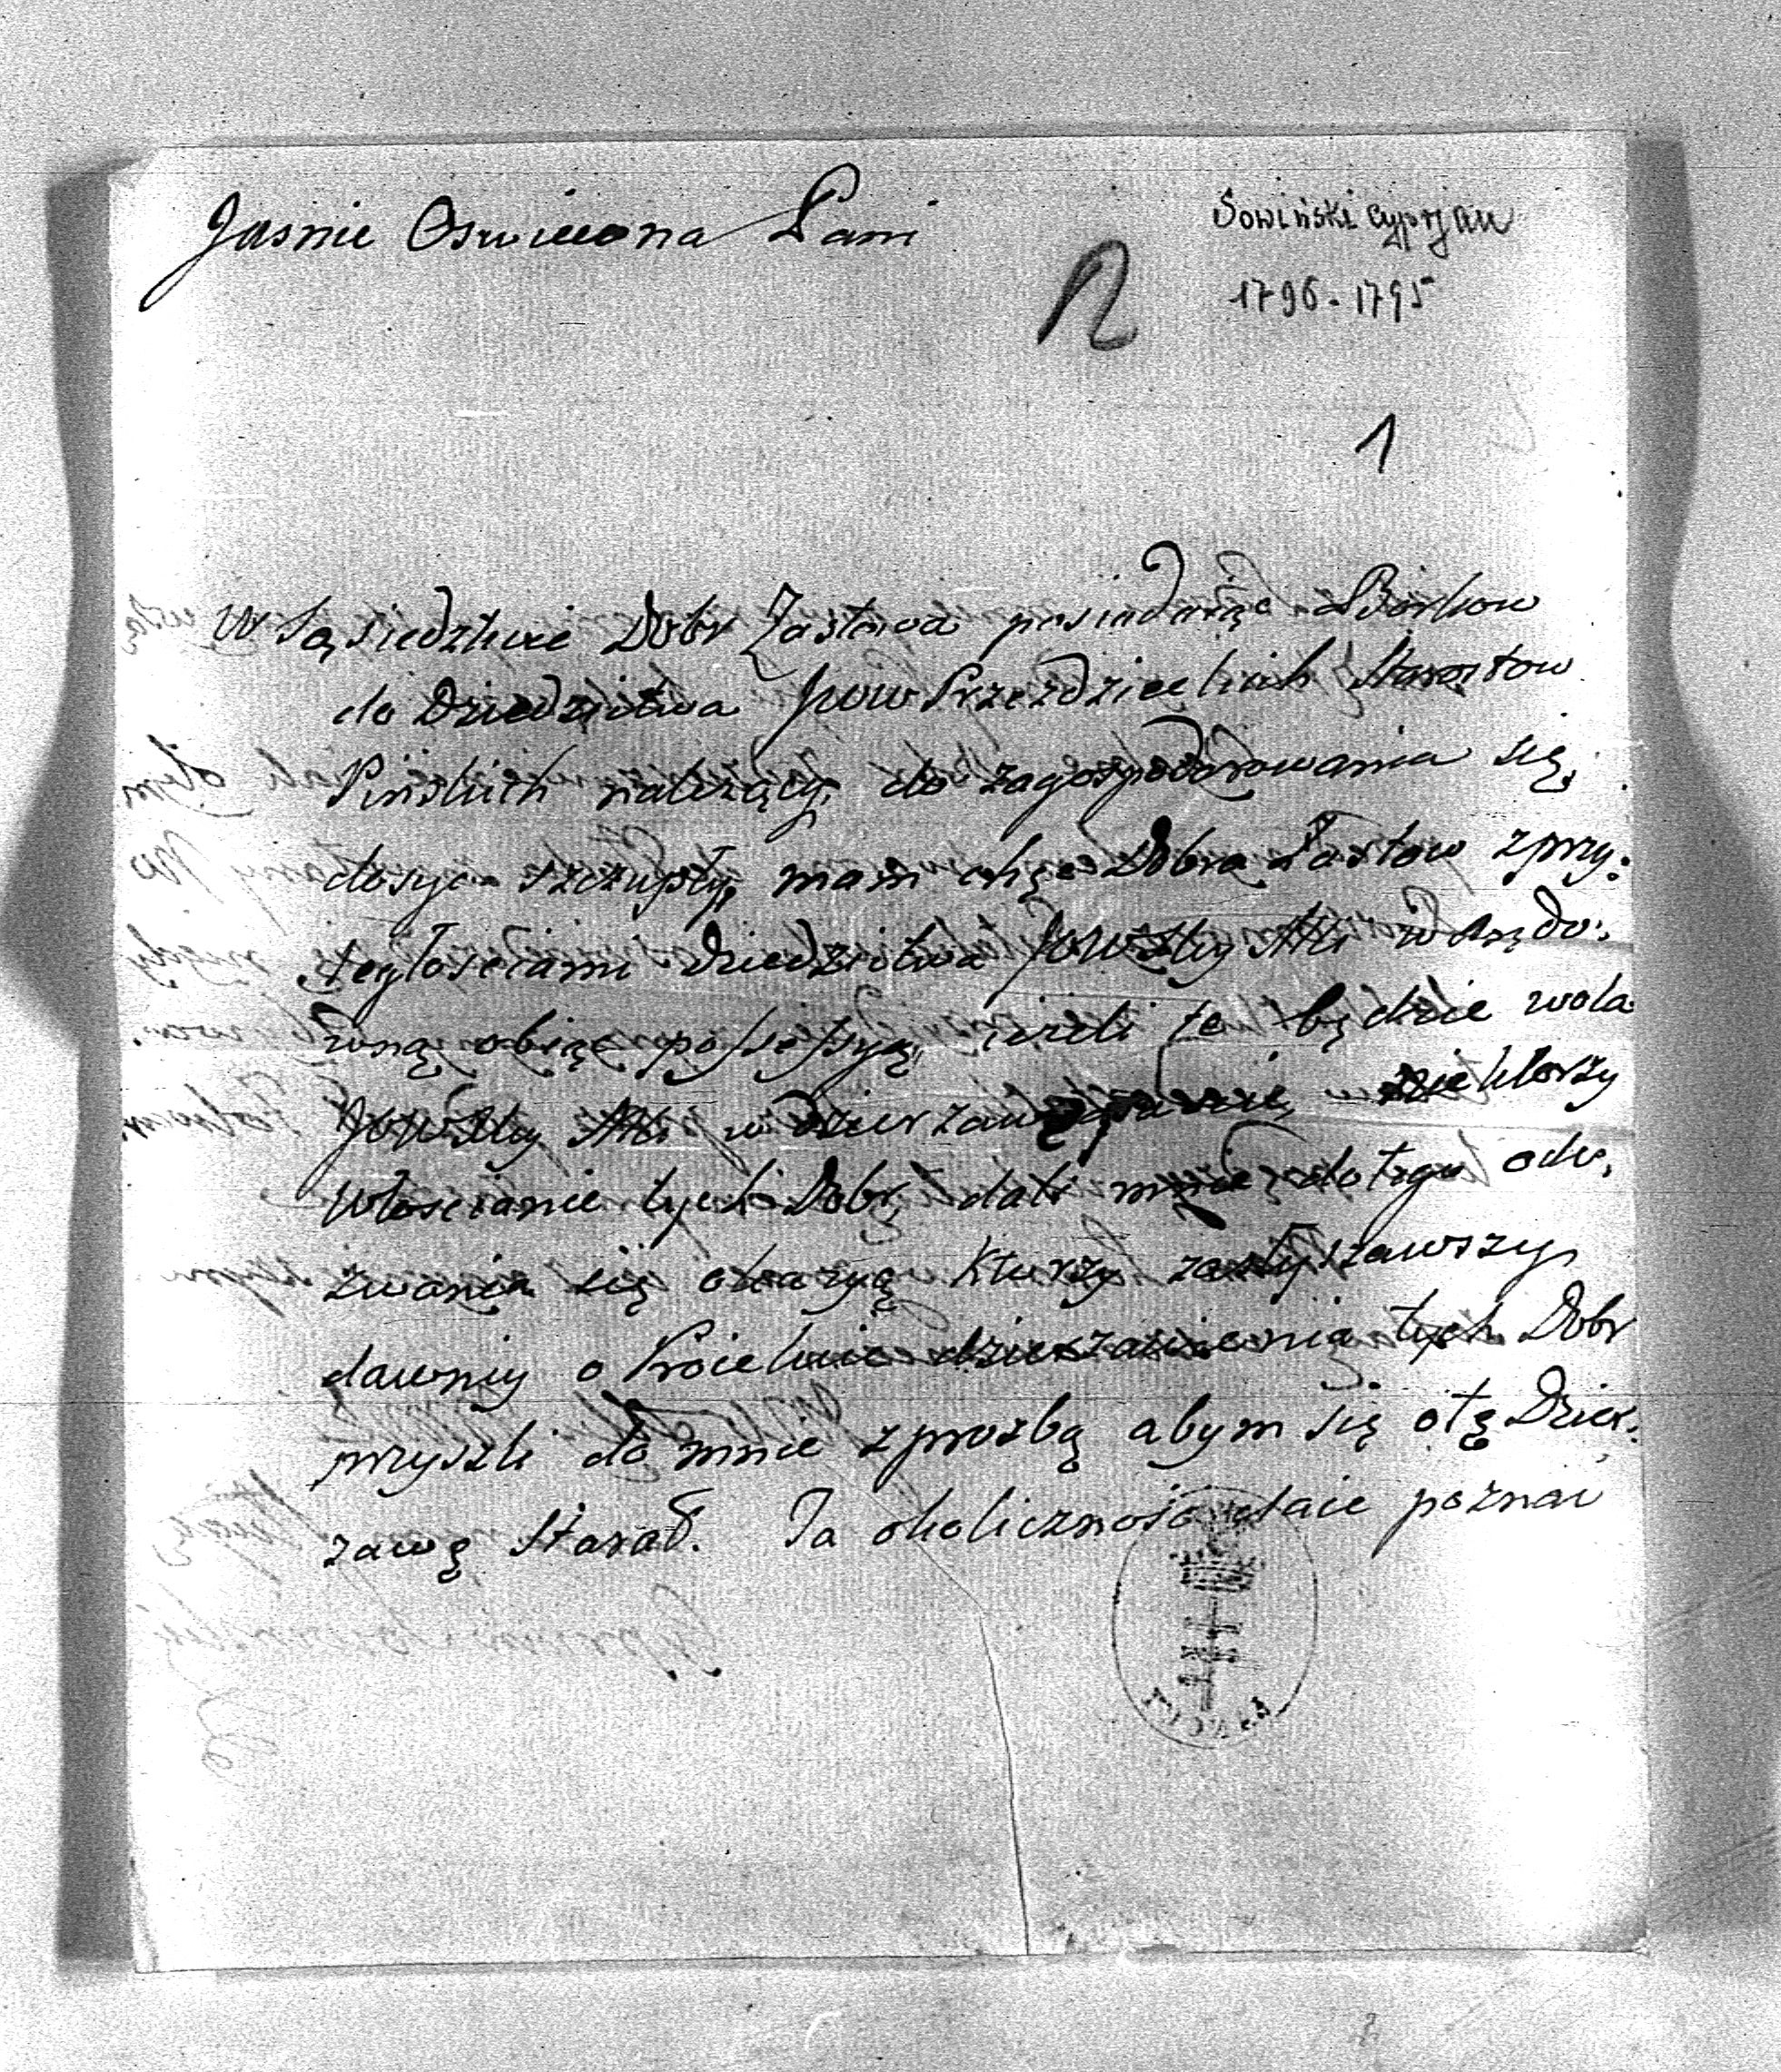 Jasnie Oswiecona Pani
Sowiński Cyprjan
1796 - 1795
1
w Sąsiedztwie Dobr Zastowa posiadaiąc Borkow
do Dziedzictwa JWW Przezdzieckich Starostow
Pińskich należący, do zagospodarowania się
dosyc szczupły, mam chęc Dobra Zastow z przy:
ległosciami Dziedzictwa JOWXcy Mci w Arędo:
wną obiąc possessyą, ieżeli ta będzie wola
JOWXcy Mci w dzierzawę Niektorzy
Włoscianie tych Dobr dali mnie do tego ode,
zwania się okazyą Kturzy zasłyszawszy
dawniy o Proiekcie dzierzawienia tych Dobr
przyszli do mnie z prozbą abym się o tę Dzier:
zawę Starał. Ta okolicznosc daie poznai